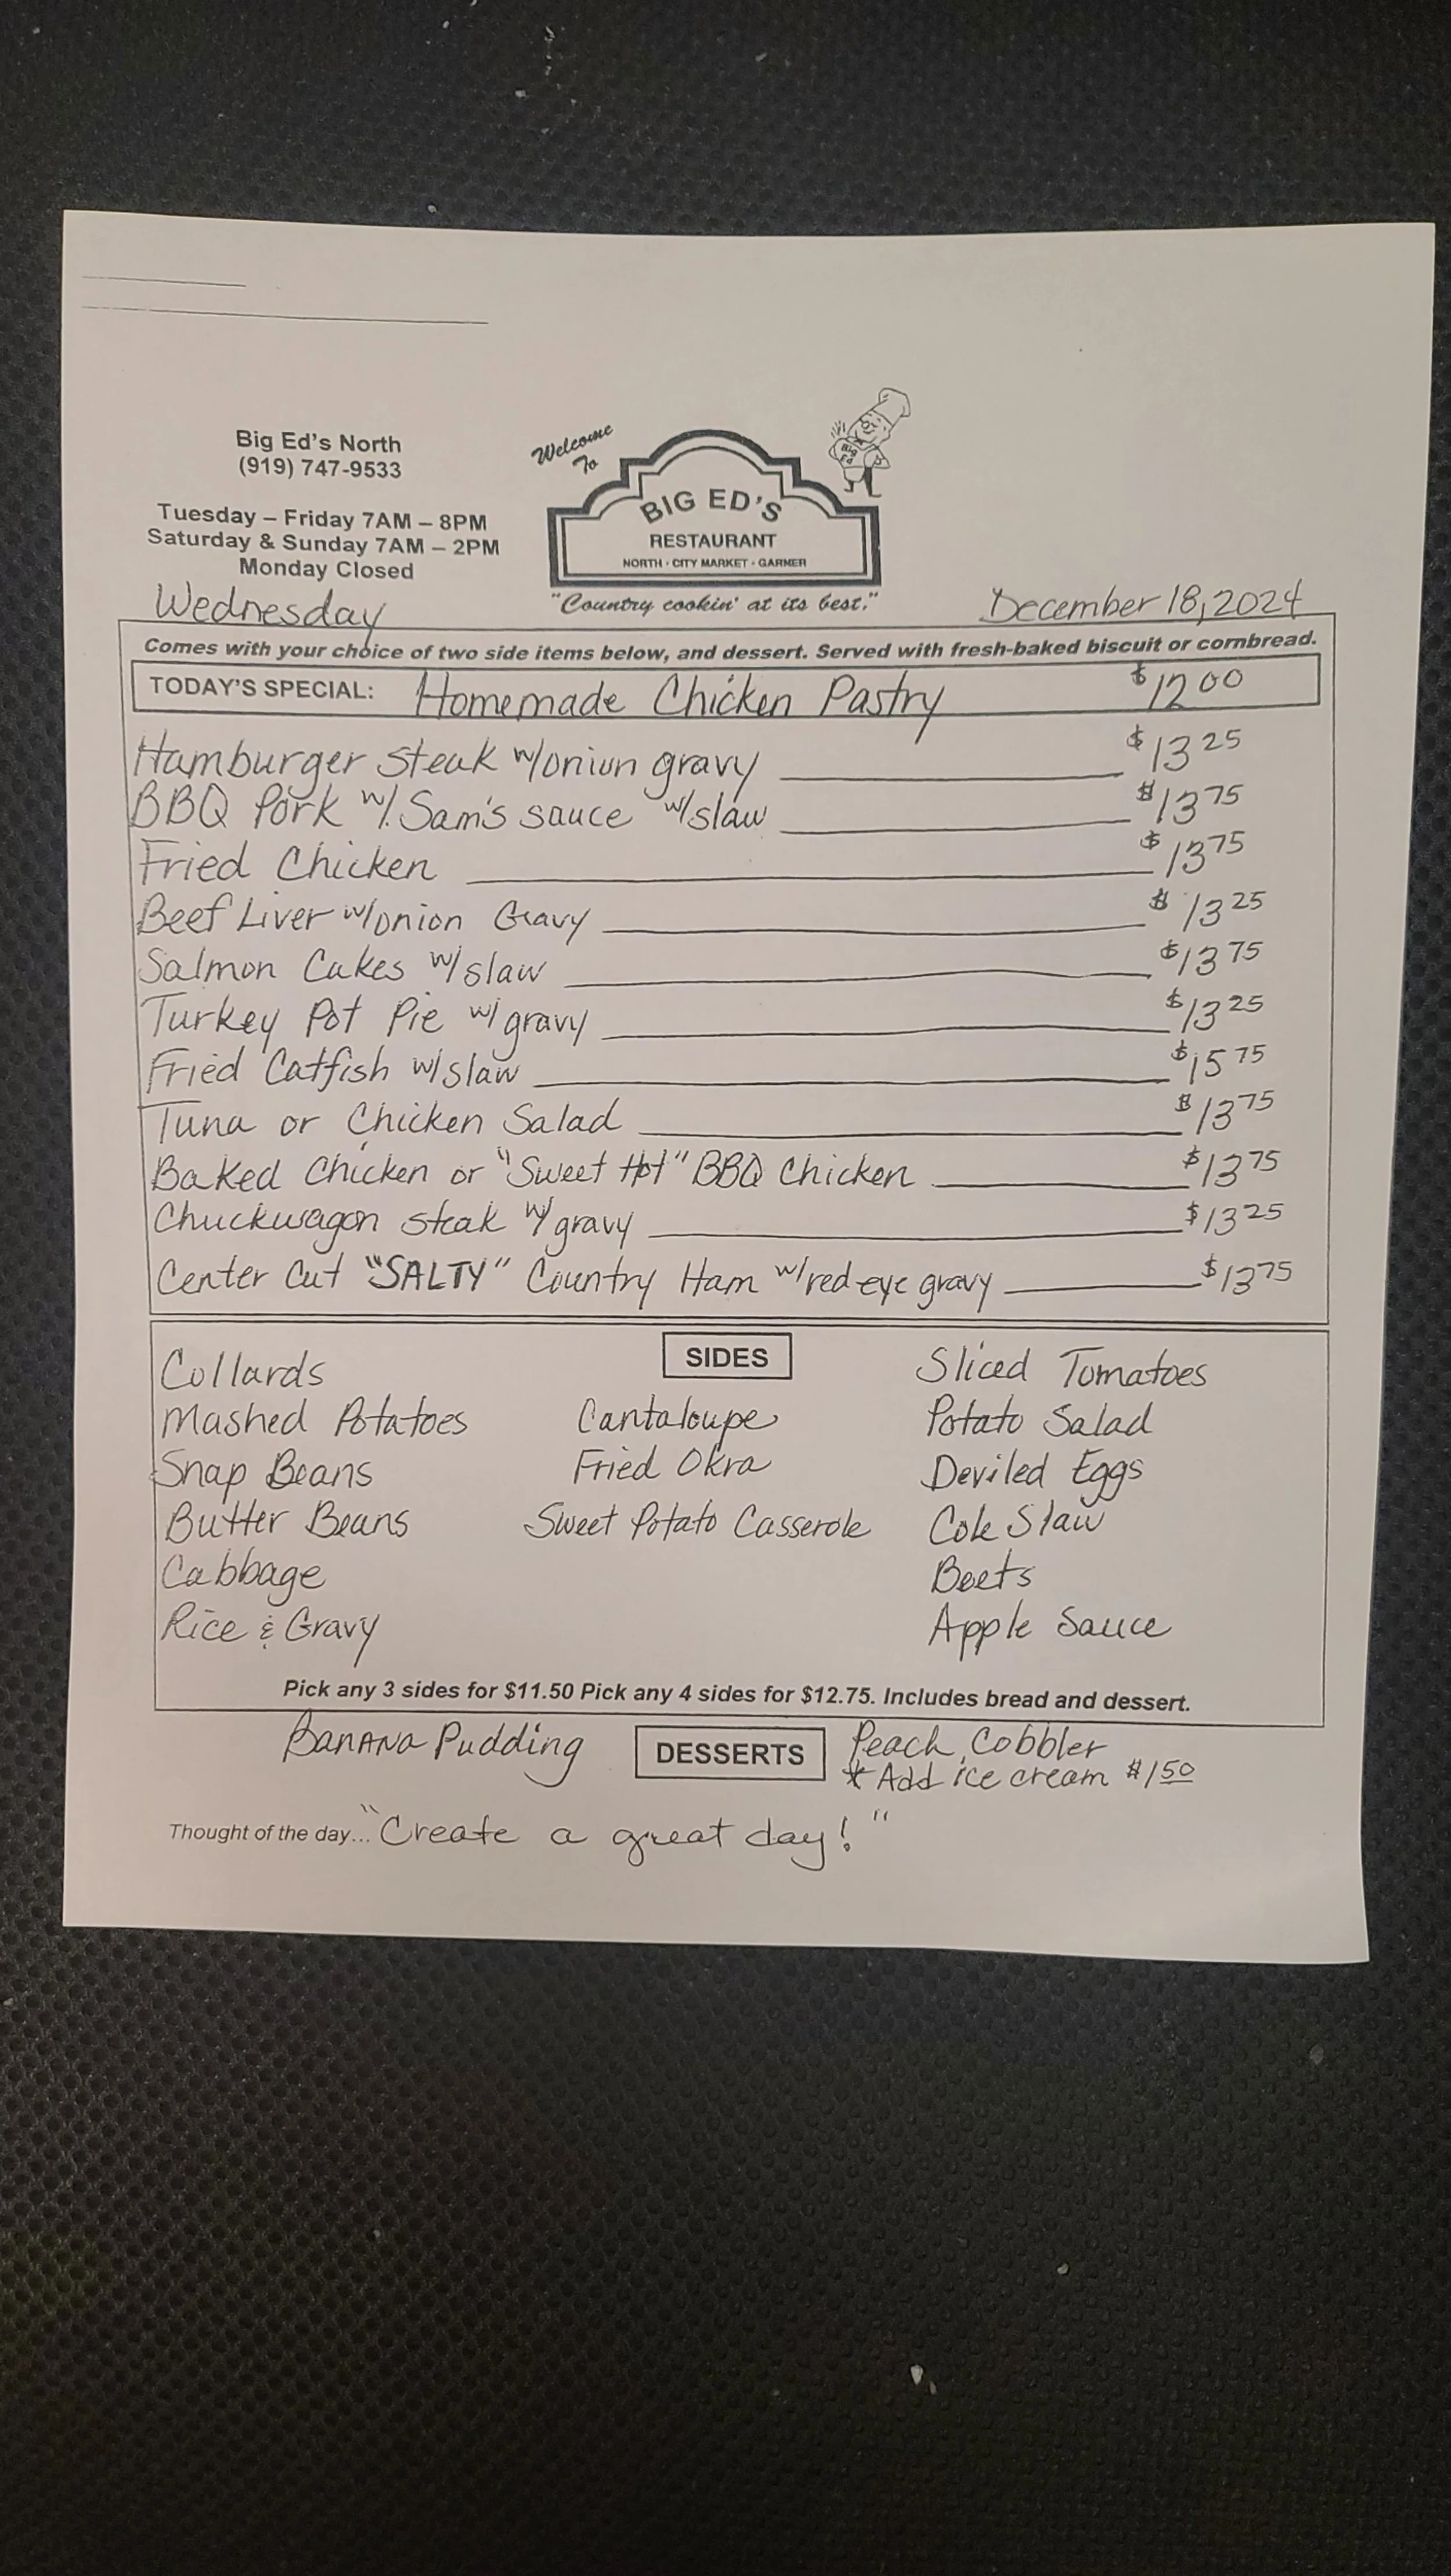 Big Ed's North
(919) 747-9533
Tuesday – Friday 7AM – 8PM
Saturday & Sunday 7AM – 2PM
Monday Closed
Welcome
To
BIG ED'S
RESTAURANT
NORTH · CITY MARKET · GARNER
"Country cookin' at its best."
Wednesday
December 18, 2024
Comes with your choice of two side items below, and dessert. Served with fresh-baked biscuit or cornbread.
TODAY'S SPECIAL: Homemade Chicken Pastry $12.00
Hamburger steak w/onion gravy $13.25
BBQ Pork w/ Sam's sauce w/slaw $13.75
Fried Chicken $13.75
Beef Liver w/onion Gravy $13.25
Salmon Cakes w/slaw $13.75
Turkey Pot Pie w/ gravy $13.25
Fried Catfish w/slaw $15.75
Tuna or Chicken Salad $13.75
Baked Chicken or "Sweet Hot" BBQ Chicken $13.75
Chuckwagon steak w/ gravy $13.25
Center Cut "SALTY" Country Ham w/red eye gravy $13.75
SIDES
Collards
Mashed Potatoes
Snap Beans
Butter Beans
Cabbage
Rice & Gravy
Cantaloupe
Fried Okra
Sweet Potato Casserole
Sliced Tomatoes
Potato Salad
Deviled Eggs
Cole Slaw
Beets
Apple Sauce
Pick any 3 sides for $11.50 Pick any 4 sides for $12.75. Includes bread and dessert.
DESSERTS
Banana Pudding
Peach Cobbler
* Add ice cream $1.50
Thought of the day... "Create a great day!"